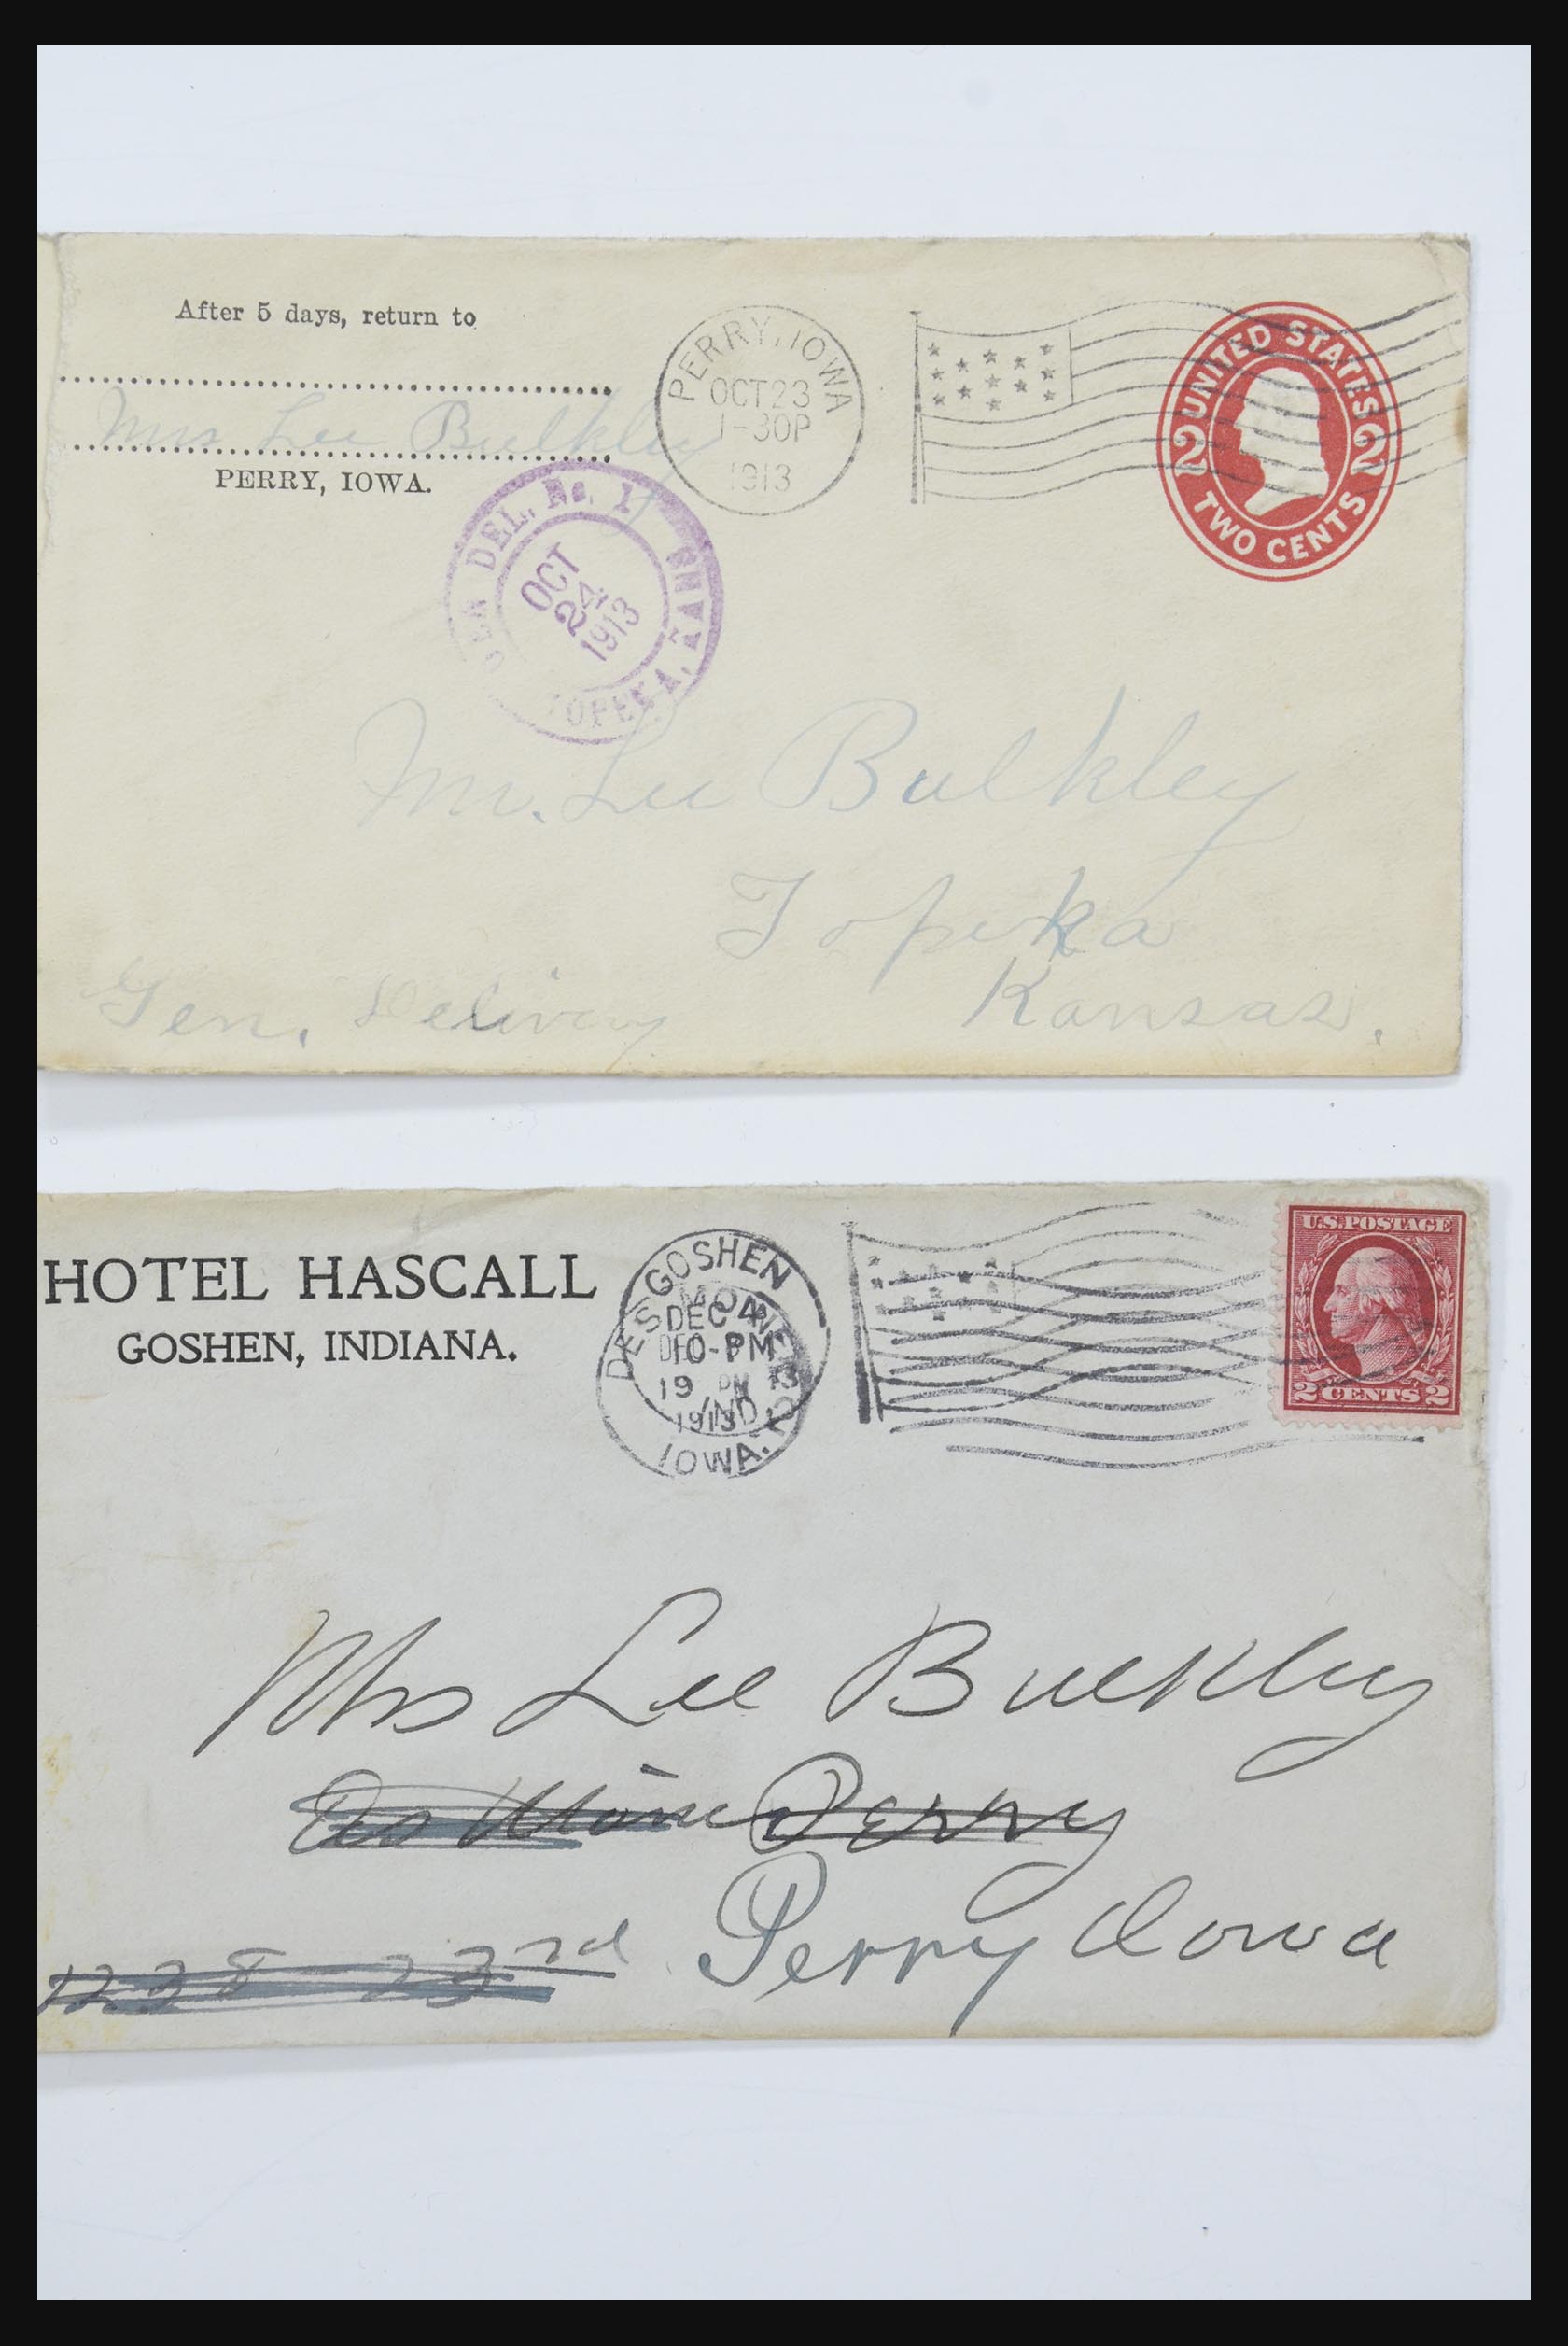 After 5 days, return to
Mrs Lee Bulkley
PERRY, IOWA.
PERRY, IOWA
OCT 23
1-30P
1913
UNITED STATES
2 2
TWO CENTS
DEL. No. 1
OCT
24
1913
TOPEKA, KANS
Mr. Lee Bulkley
Topeka
Kansas.
Gen. Delivery
HOTEL HASCALL
GOSHEN, INDIANA.
GOSHEN
DES MOINES
DEC 4
PM
19 13
PM
1913
IND.
IOWA.
U.S. POSTAGE
2 CENTS 2
Mrs Lee Bulkley
Perry
Perry Iowa
1228 23rd